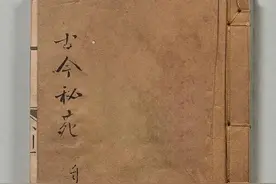 古今秘苑